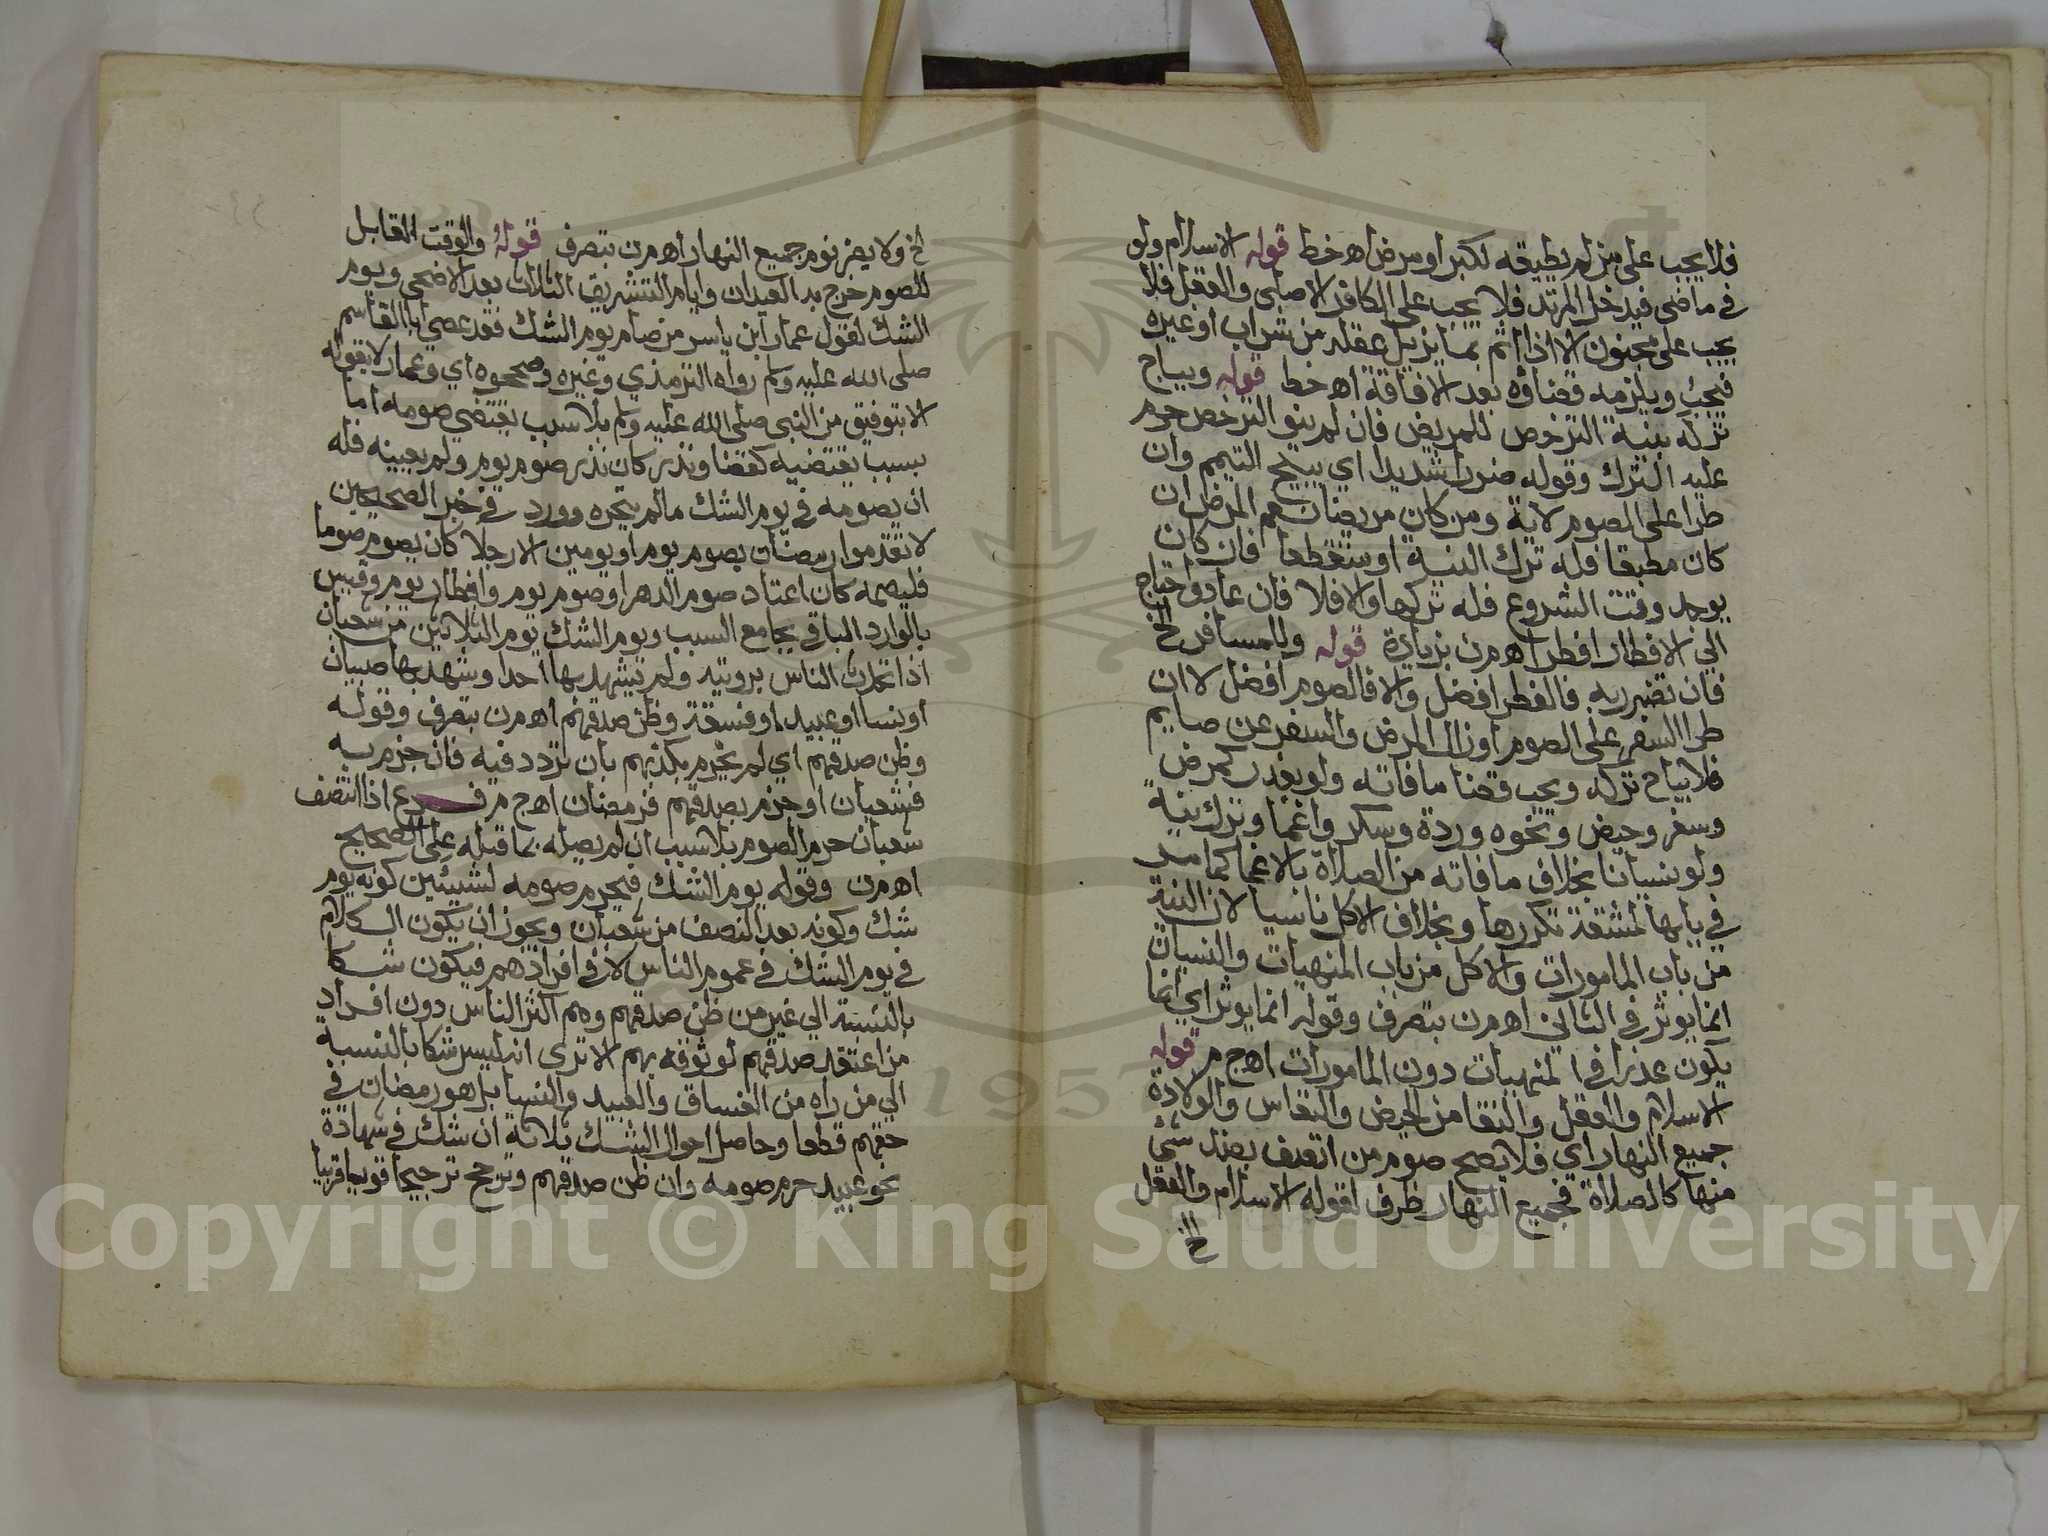 فلا يجب على من لم يطيقه لكبر او مرض اهـ خط قوله الاسلام ولو
في ماضى فيدخل المرتد فلا يجب على الكافر الاصلى والعقل فلا
يجب على مجنون الا اذا اثم بما يزيل عقله من شراب او غيره
فيجب ويلزمه قضاؤه بعد الافاقة اهـ خط قوله ويباح
تركه بنية الترخص للمريض فان لم ينو الترخص حرم
عليه الترك وقوله ضررا شديدا اي يبيح التيمم وان
طرا على الصوم لاية ومن كان مريضا ثم المرض ان
كان مطبقا فله ترك النية او متقطعا فان كان
يوجد وقت الشروع فله تركها والا فلا فان عاد واحتاج
الى الافطار افطر اهـ م ر بزيادة قوله وللمسافر الخ
فان تضرر به فالفطر افضل والا فالصوم افضل لا ان
طرا السفر على الصوم او زال المرض والسفر عن صايم
فلا يباح تركه ويجب قضا ما فاته ولو بعذر كمرض
وسفر وحيض ونحوه وردة وسكر واغما وترك نية
ولو نسيانا بخلاف ما فاته من الصلاة بالاغما كما مر
في بابها لمشقة تكررها وبخلاف الاكل ناسيا لان النية
من باب المامورات والاكل من باب المنهيات والنسيان
انما يوثر في الثاني اهـ م ر بتصرف وقوله انما يوثر اي انما
يكون عذرا في المنهيات دون المامورات اهـ ج م قوله
الاسلام والعقل والنقا من الحيض والنفاس والولادة
جميع النهار اي فلا يصح صوم من اتصف بضد شئ
منها كالصلاة فجميع النهار ظرف لقوله الاسلام والعقل
الخ
الخ ولا يضر نوم جميع النهار اهـ م ر بتصرف قوله والوقت القابل
للصوم خرج به العيدان وايام التشريق الثلاث بعد الاضحى ويوم
الشك لقول عمار ابن ياسر من صام يوم الشك فقد عصى ابا القاسم
صلى الله عليه وسلم رواه الترمذي وغيره وصححوه اي وعمار لا يقوله
الا بتوفيق من النبي صلى الله عليه وسلم بلا سبب يقتضي صومه اما
بسبب يقتضيه كقضا ونذر كان نذر صوم يوم ولم يعينه فله
ان يصومه في يوم الشك ما لم يتحره وورد في خبر الصحيحين
لا تقدموا رمضان بصوم يوم او يومين الا رجلا كان يصوم صوما
فليصمه كان اعتاد صوم الدهر او صوم يوم وافطار يوم وقيس
بالوارد الباقي بجامع السبب ويوم الشك يوم الثلاثين من شعبان
اذا تحدث الناس برويته ولم يشهد بها احدا وشهد بها صبيان
او نسا او عبيد او فسقة وظن صدقهم اهـ م ر بتصرف وقوله
وظن صدقهم اي لم يجزم بكذبهم بان تردد فيه فان جزم به
فشعبان او جزم بصدقهم فرمضان اهـ ج م فرع اذا انتصف
شعبان حرم الصوم بلا سبب ان لم يصله بما قبله على الصحيح
اهـ م ر وقوله يوم الشك فيحرم صومه لشيئين كونه يوم
شك وكونه بعد النصف من شعبان ويجوز ان يكون الكلام
في يوم الشك في عموم الناس لا في افرادهم فيكون شكا
بالنسبة الي غير من ظن صدقهم وهم اكثر الناس دون افراد
من اعتقد صدقهم لوثوقه بهم الا ترى انه ليس شكا بالنسبة
الي من راه من الفساق والعبيد والنسا بل هو رمضان في
حقهم قطعا وحاصل احوال الشك ثلاثة ان شك في شهادة
نحو عبيد حرم صومه وان ظن صدقهم وترجح ترجيحا قويا قريبا
Copyright © King Saud University
1957